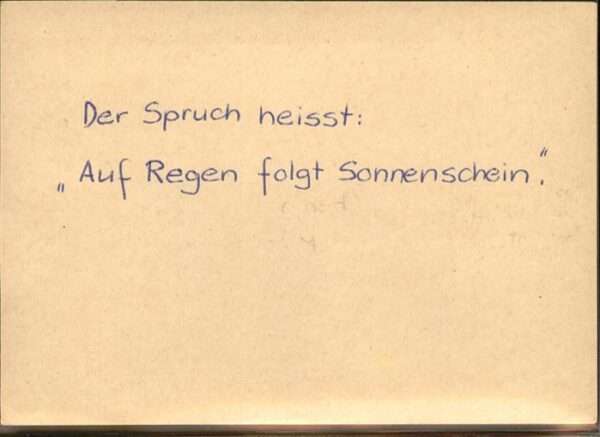 Der Spruch heisst:
„Auf Regen folgt Sonnenschein.“